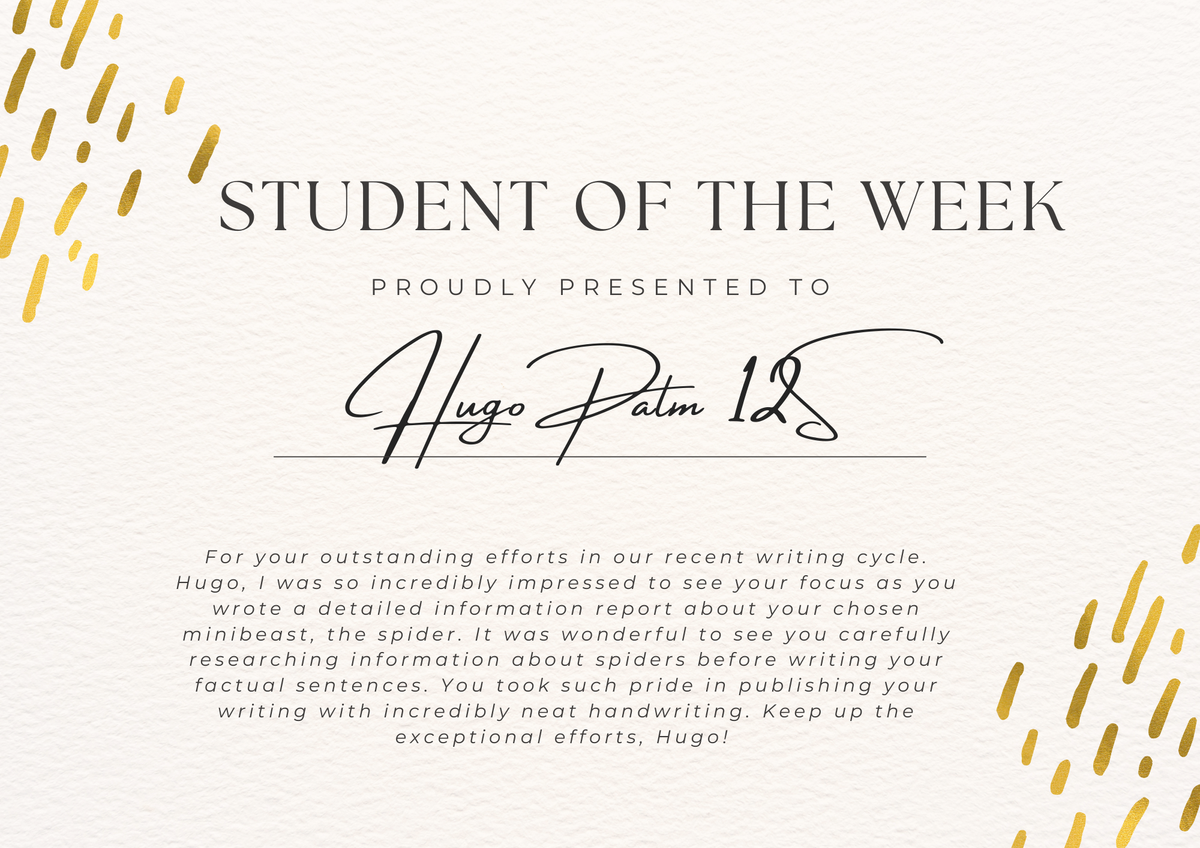 STUDENT OF THE WEEK
PROUDLY PRESENTED TO
Hugo Palm 12S
For your outstanding efforts in our recent writing cycle.
Hugo, I was so incredibly impressed to see your focus as you
wrote a detailed information report about your chosen
minibeast, the spider. It was wonderful to see you carefully
researching information about spiders before writing your
factual sentences. You took such pride in publishing your
writing with incredibly neat handwriting. Keep up the
exceptional efforts, Hugo!